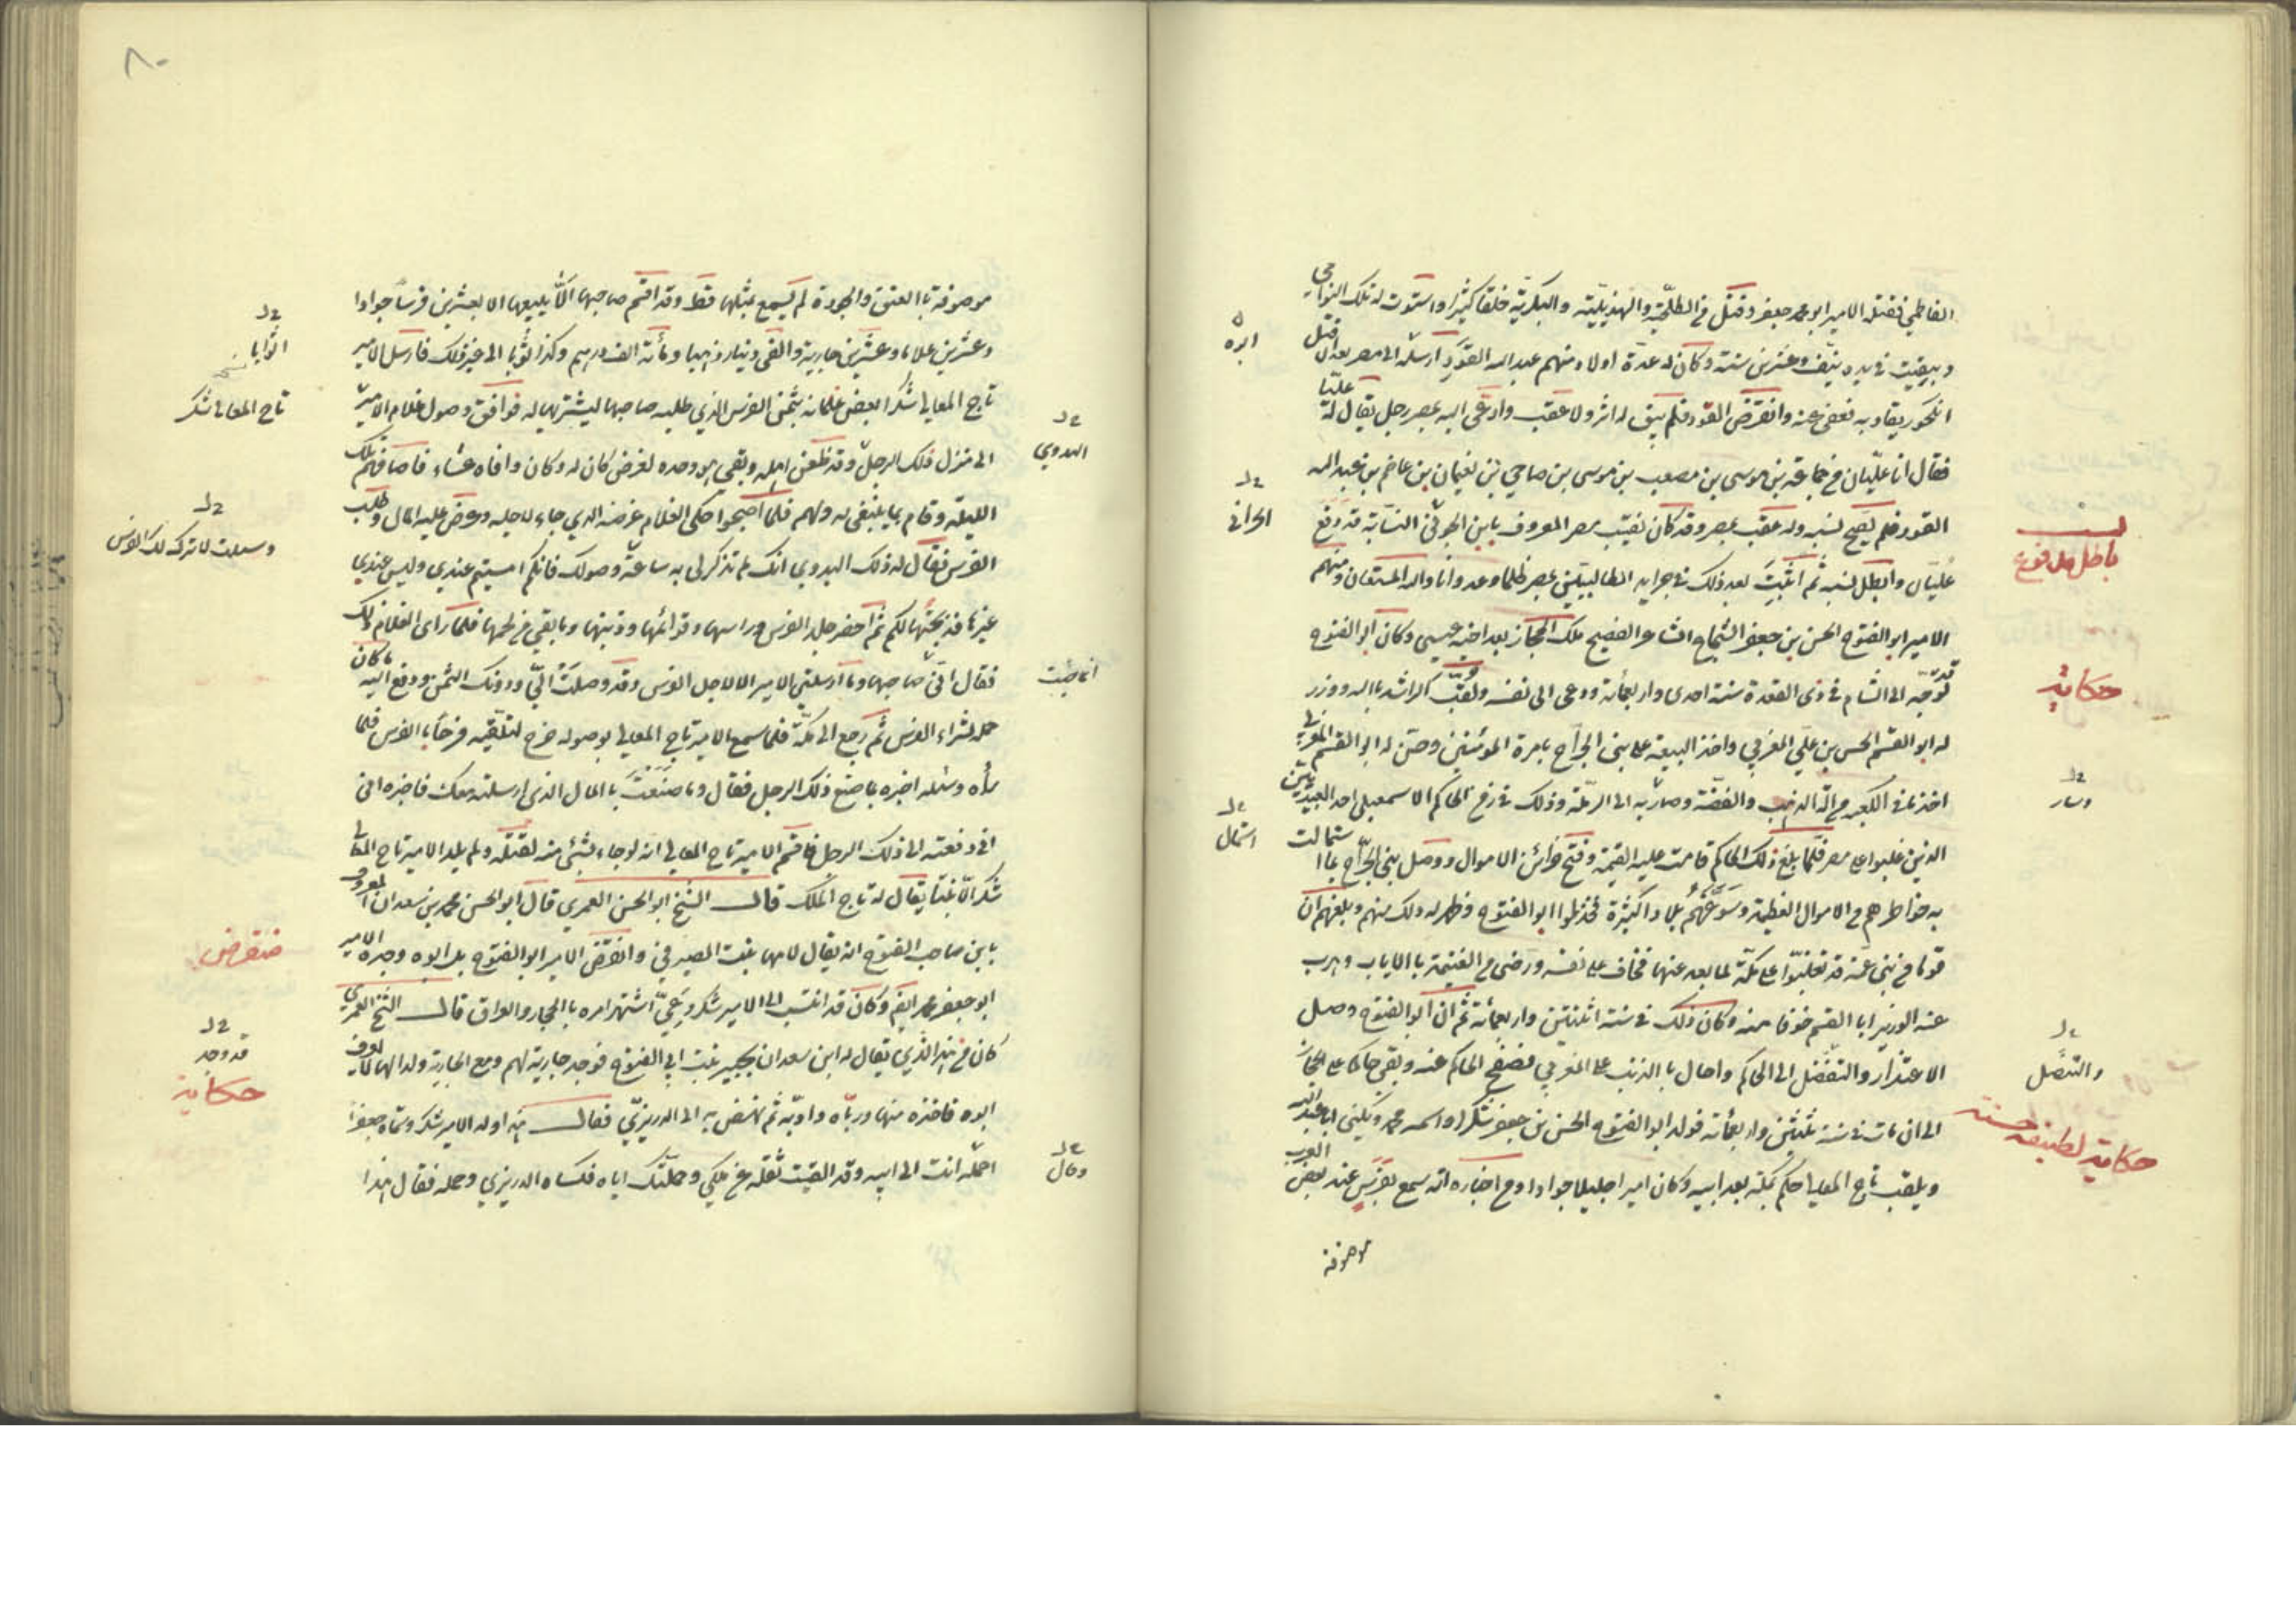 الفاطمي فقتله الامير ابو محمد جعفر وقتل في الطلحية والهذيلية والبكرية خلقا كثيرا واستوت له تلك النواحي
وبقيت في يده نيف وعشرين سنة وكان له عدة اولاد منهم عبد الله القود ارسله الى مصر بعد ان قتل
انكجور يقاد به فعفى عنه وانقرض القود فلم يبق له اثر ولا عقب وادعى اليه بمصر رجل يقال له عليان
فقال انا عليان بن جماعة بن موسى بن مصعب بن موسى بن صاحي بن نعيمان بن عاصم بن عبد الله
القود فلم يصح نسبه وله عقب بمصر وقد كان نقيب مصر المعروف بابن الجوانى النسابة قد دفع
عليان وابطل نسبه ثم اثبت بعد ذلك في جرايد الطالبيين بمصر ظلما وعدوانا والله المستعان ومنهم
الامير ابو الفتوح الحسن بن جعفر الشجاع الشاعر الفصيح ملك الحجاز بعد اخيه عيسى وكان ابو الفتوح
قد توجه الى الشام في ذى القعدة سنة احدى واربعمائة ودعى الى نفسه ولقب الراشد بالله ووزر
له ابو القسم الحسين بن علي المغربي واخذ البيعة على بنى الجراح بامرة المؤمنين وحسن له ابو القسم المغربي
اخذ ما في الكعبة من آلة الذهب والفضة وصار به الى الرملة وذلك في زمن الحاكم الاسمعيلى احد العبيديين
الذين غلبوا على مصر فلما بلغ ذلك الحاكم قامت عليه القيمة وفتح خزائن الاموال ووصل بنى الجراح بما استمالت
به خواطرهم من الاموال العظيمة وسوغهم بلادا كثيرة فخذلوا ابو الفتوح وظهر له ذلك منهم وبلغهم ان
قوما من بنى عمه قد تغلبوا على مكة لما بعد عنها فخاف على نفسه ورضى من الغنيمة بالاياب وهرب
عنه الوزير ابا القسم خوفا منه وكان ذلك في سنة اثنتين واربعمائة ثم ان ابو الفتوح وصل
الاعتذار والتفضل الى الحاكم واحال بالذنب على المغربي فصفح الحاكم عنه وبقى حاكما على الحجاز
الى ان مات في سنة ثلثين واربعمائة فولد ابو الفتوح الحسن بن جعفر شكرا واسمه محمد ويكنى ابا عبد الله
ويلقب تاج المعالي حكم بمكة بعد ابيه وكان اميرا جليلا جوادا ومن اخباره انه سمع بفرس عند بعض العرب
موصوفة
ابره
الحرانى
نسب
باطل مدفوع
حكاية
وسار
استمال
والتنصل
حكاية لطيفة حسنة
٨٠
موصوفة بالعتق والجودة لم يسمع بمثلها قط وقد اقسم صاحبها الا يبيعها الا بعشرين فرسا جوادا
وعشرين غلاما وعشرين جارية والفى دينار ذهبا ومائة الف درهم وكذا ثوبا الى غير ذلك فارسل الامير
تاج المعالي شكر ا لبعض غلمانه بثمن الفرس الذي طلبه صاحبها ليشتريها له فوافق وصول غلام الامير
الى منزل ذلك الرجل وقد ظعن اهله وبقى هو وحده لغرض كان له وكان وافاه عشاء فاضافهم تلك
الليلة وقام بما ينبغى له ولهم فلما اصبحوا حكى الغلام غرضه الذي جاء لاجله وعرض عليه المال وطلب
الفرس فقال له ذلك البدوي انك لم تذكر لى به ساعة وصولك فانكم امسيتم عندي وليس عندي
غيرها فذبحتها لكم ثم احضر جلد الفرس وراسها وقوائمها وذنبها وما بقي من لحمها فلما راى الغلام ذلك
فقال انى صاحبها وما ارسلني الامير الا لاجل الفرس وقد وصلت الي ودونك الثمن ودفع اليه ما كان
حمله لشراء الفرس ثم رجع الى مكة فلما سمع الامير تاج المعالي بوصوله خرج لتلقيه فرحا بالفرس فلما
رآه وسئله اخبره بما صنع ذلك الرجل فقال وما صنعت بالمال الذي ارسلته معك فاخبره انى
انى دفعته الى ذلك الرجل فاقسم الامير تاج المعالي انه لو جاء بشئ منه لقتله ولم يلد الامير تاج المعالي
شكر الا بنتا يقال له تاج الملك قال الشيخ ابو الحسن العمري قال ابو الحسن محمد بن سعدان المعروف
بابن صاحب الفتوح انه يقال لامها بنت الصيرفي وانقرض الامير ابو الفتوح بل ابوه وجده الامير
ابو جعفر محمد ايضا وكان قد انتسب الى الامير شكر دعي اشتهر امره بالحجاز والعراق قال الشيخ العمري
كان من هذا الذي يقال له ابن سعدان يجبر بنت ابي الفتوح فوجد جارية لهم ومع الجارية ولد الها لا يعرف
ابوه فاخذه منها ورباه وادبه ثم نهض به الى الدريزي فقال هذا ولد الامير شكر وسماه جعفرا
احمله انت الى ابيه وقد القيت ثقله عن ملكي وحملتك اياه فكساه الدريزي وحمله فقال هذا
اثوابا
تاج المعالى شكر
البدوي
وسألت لاترك لك الفرس
انا جئت
منقرض
قد وجد
حكاية
وقال